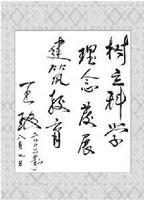 树立科学
理念发展
建筑教育
王政
二〇〇六年
八月七日